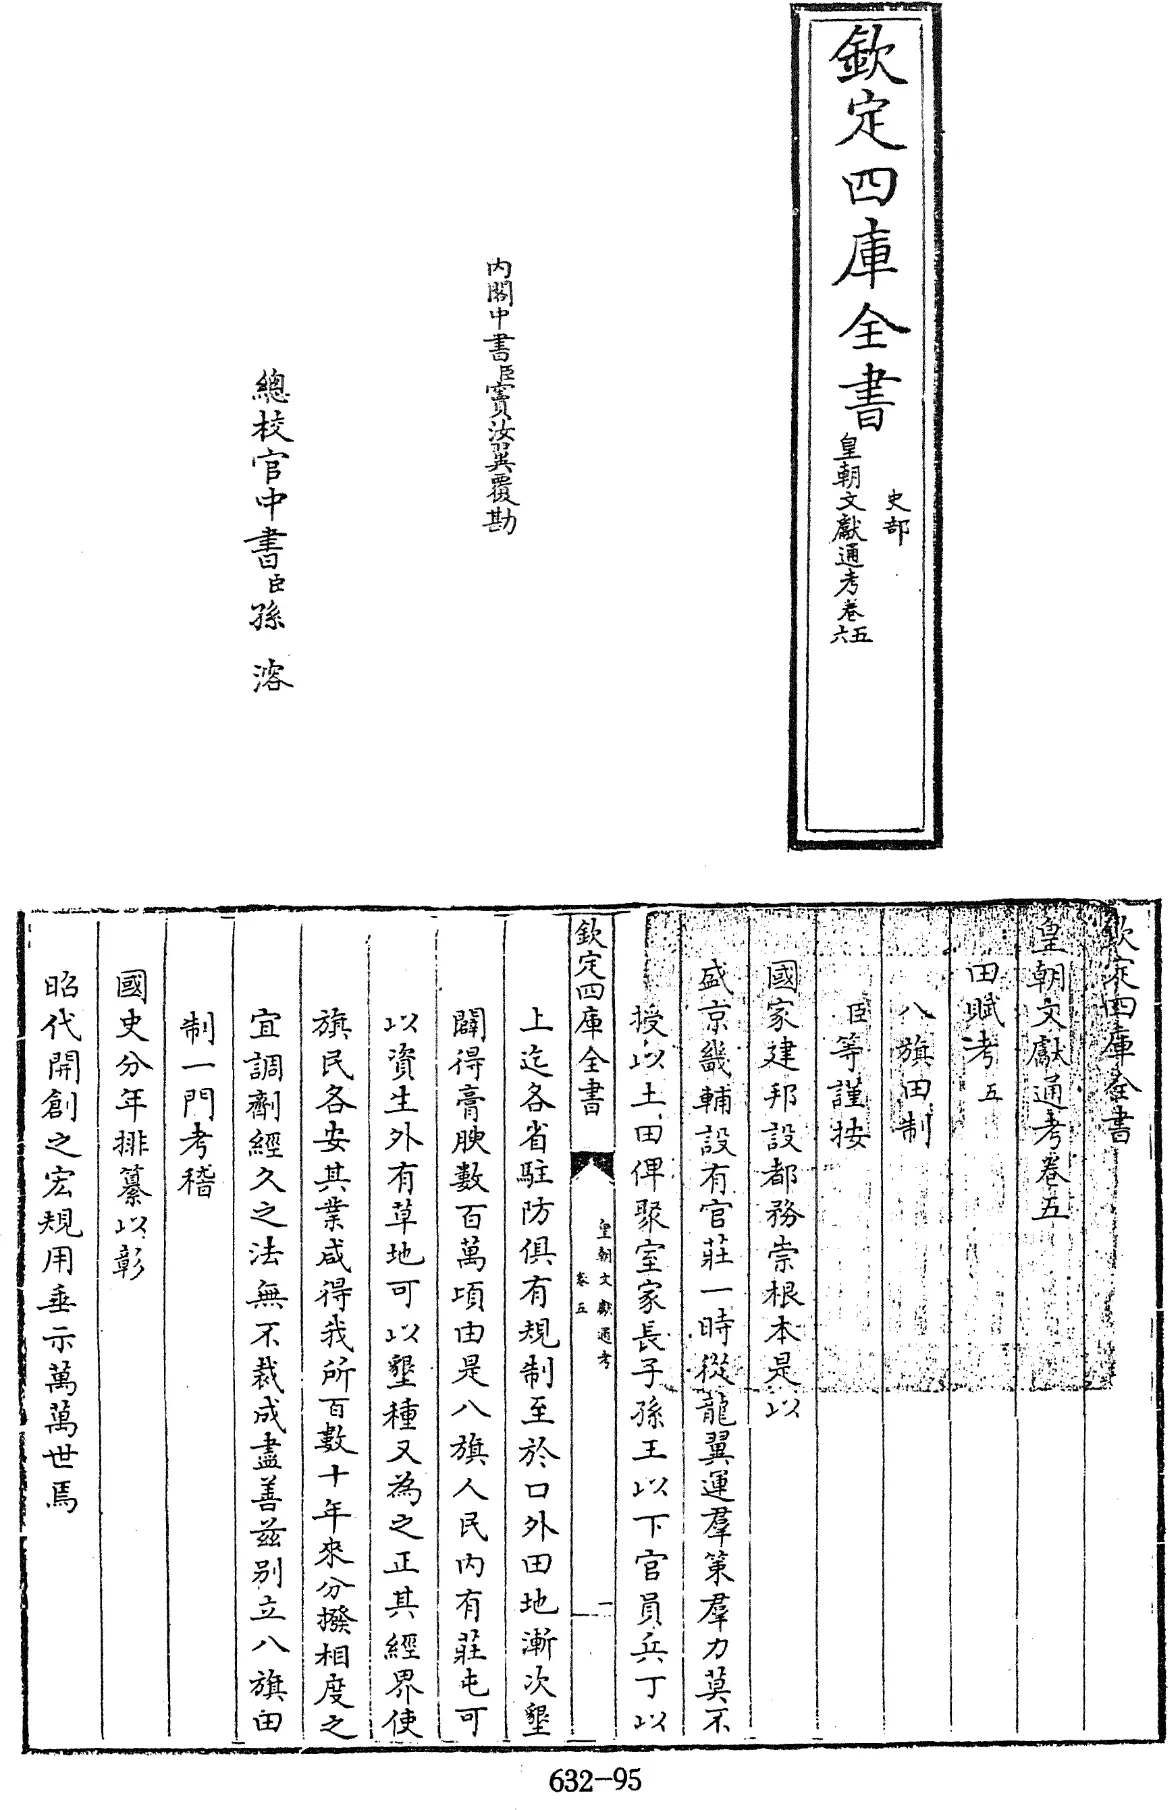 欽定四庫全書
史部
皇朝文獻通考卷五六
内閣中書臣竇汝翼覆勘
總校官中書臣孫溶
欽定四庫全書
皇朝文獻通考卷五
田賦考五
八旗田制
臣等謹按
國家建邦設都務崇根本是以
盛京畿輔設有官莊一時從龍翼運羣策羣力莫不
授以土田俾聚室家長子孫王以下官員兵丁以
欽定四庫全書
皇朝文獻通考
卷五
一
上迄各省駐防俱有規制至於口外田地漸次墾
闢得膏腴數百萬頃由是八旗人民内有莊屯可
以資生外有草地可以墾種又為之正其經界使
旗民各安其業咸得我所百數十年來分撥相度之
宜調劑經久之法無不裁成盡善兹别立八旗田
制一門考稽
國史分年排纂以彰
昭代開創之宏規用垂示萬萬世焉
632-95